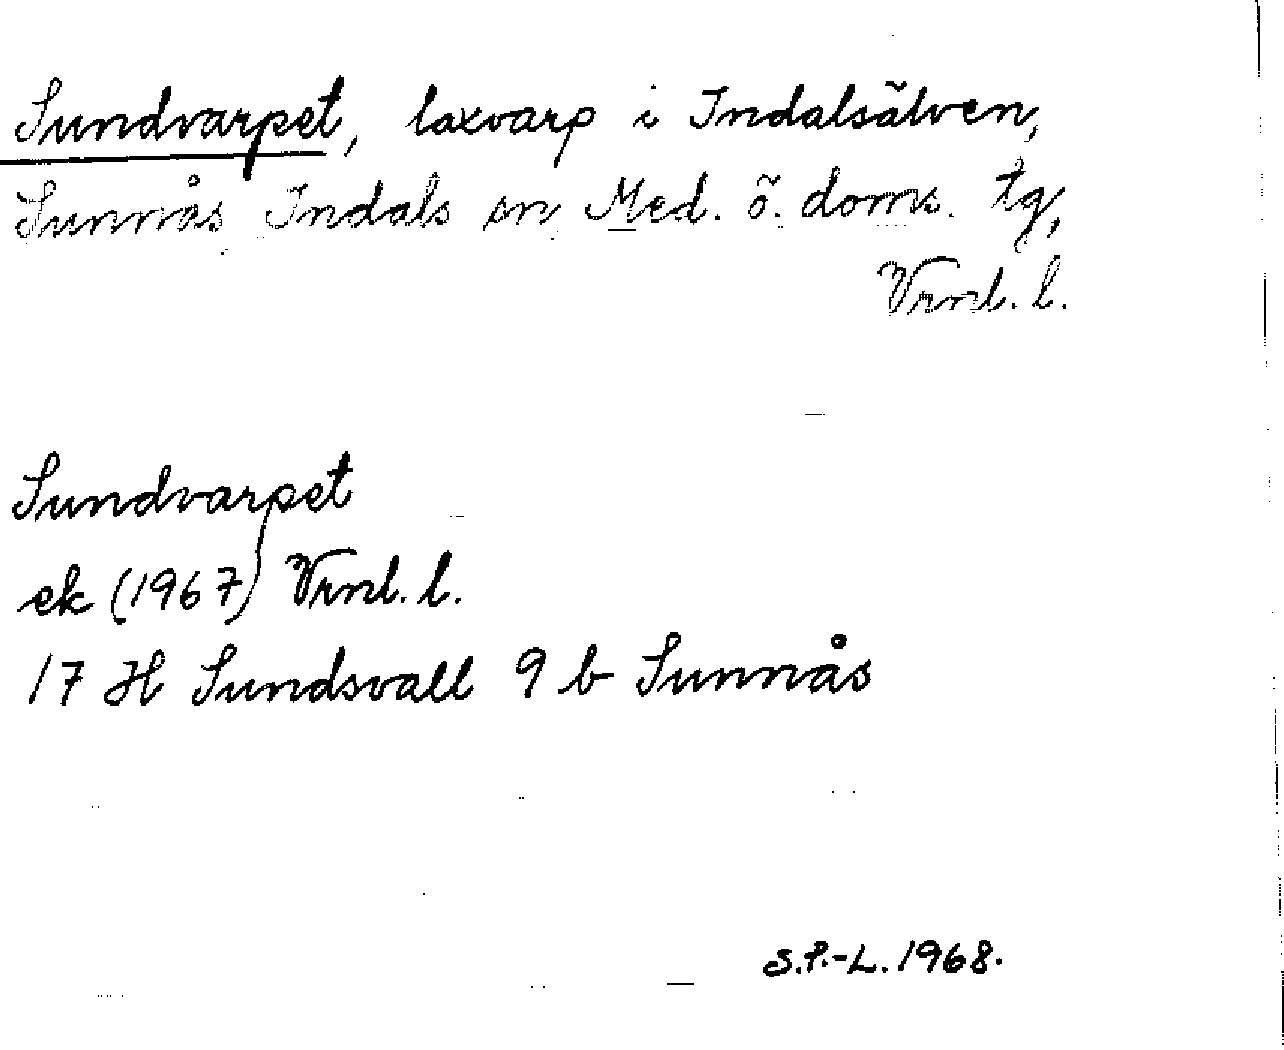 Sundvarpet, laxvarp i Indalsälven,
Sunnås Indals sn Med. ö. doms. tg,
Vrnl. l.
Sundvarpet
ek (1967) Vrnl. l.
17 H Sundsvall 9 b Sunnås
S.P.-L. 1968.